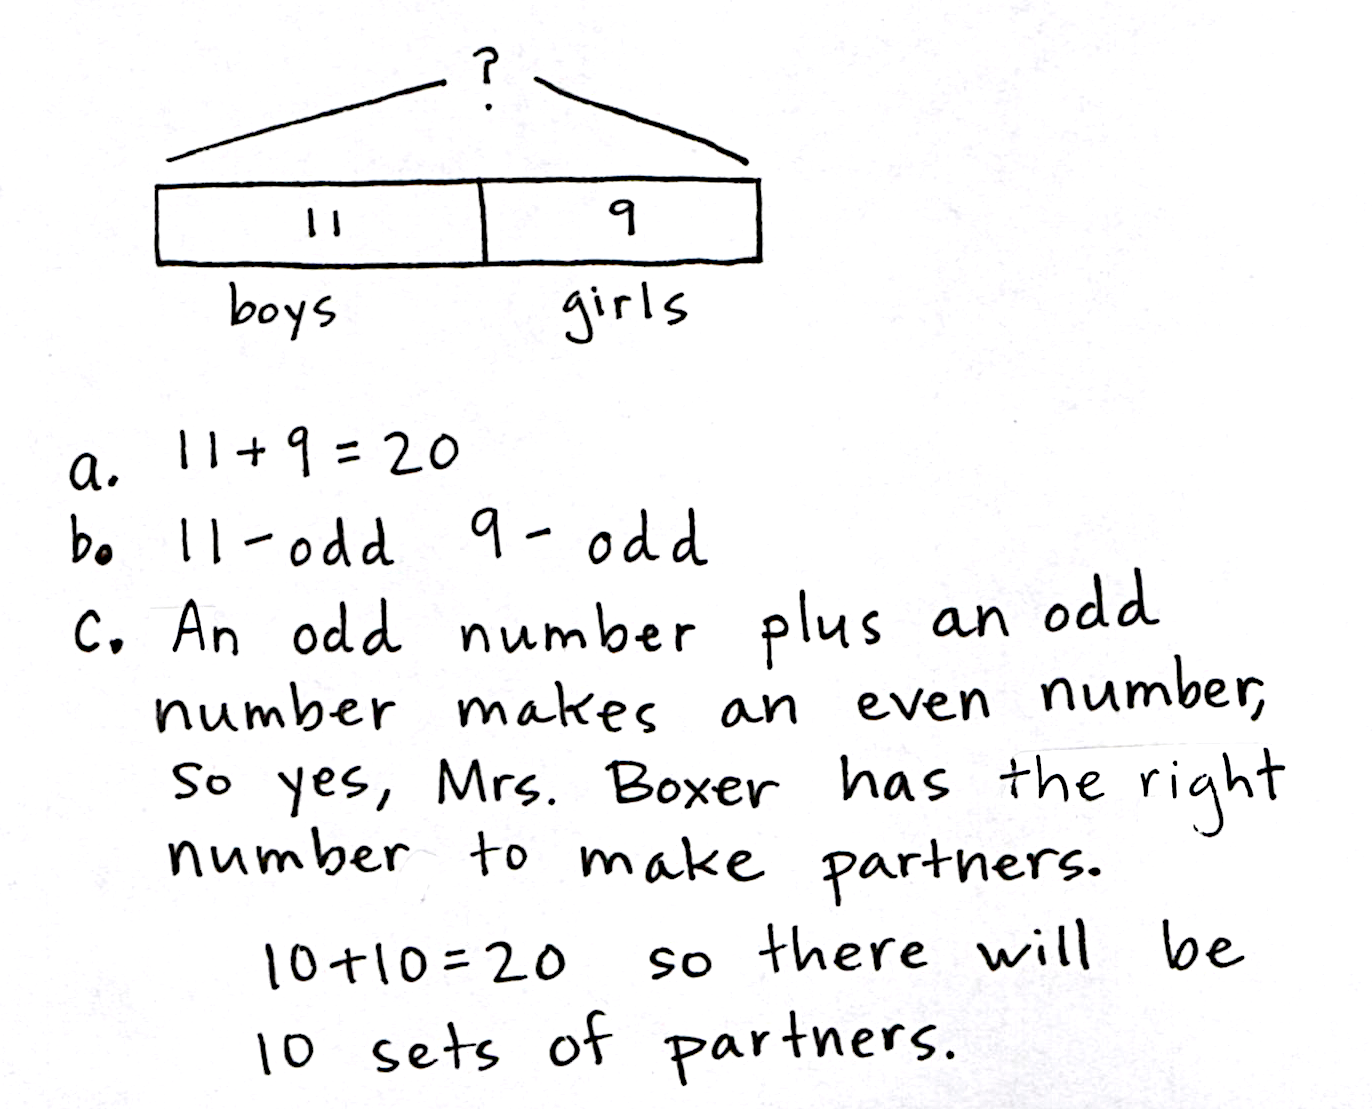 ?
11 9
boys girls
a. 11 + 9 = 20
b. 11 - odd 9 - odd
c. An odd number plus an odd
number makes an even number,
so yes, Mrs. Boxer has the right
number to make partners.
10 + 10 = 20 so there will be
10 sets of partners.